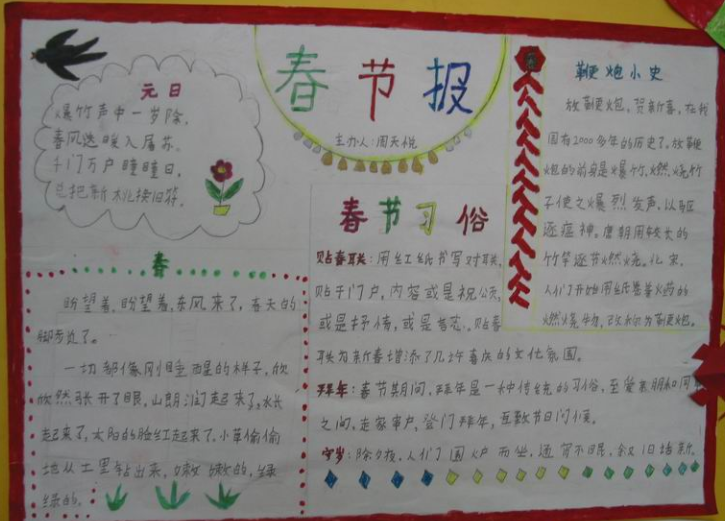 春节报
主办人:周天悦
元日
爆竹声中一岁除,
春风送暖入屠苏。
千门万户瞳瞳日,
总把新桃换旧符。
春
盼望着,盼望着,东风来了,春天的
脚步近了。
一切都像刚睡醒的样子,欣
欣然张开了眼,山朗润起来了,水长
起来了,太阳的脸红起来了。小草偷偷
地从土里钻出来,嫩嫩的,绿
绿的。
春节习俗
贴春联:用红纸书写对联,
贴于门户,内容或是祝公示,
或是抒情,或是言志。贴春
联为新春增添了几许喜庆的文化氛围。
拜年:春节期间,拜年是一种传统的习俗,至爱亲朋和同
之间,走家串户,登门拜年,互致节日问候。
守岁:除夕夜,人们围炉而坐,通宵不眠,叙旧话新。
鞭炮小史
放鞭炮,贺新喜,在我
国有2000多年的历史了。放鞭
炮的前身是爆竹,燃烧竹
子使之爆烈发声,以驱
逐瘟神。唐朝用较长的
竹竿逐节燃烧。北宋,
人们开始用纸卷着火药的
燃烧物,改称为鞭炮。